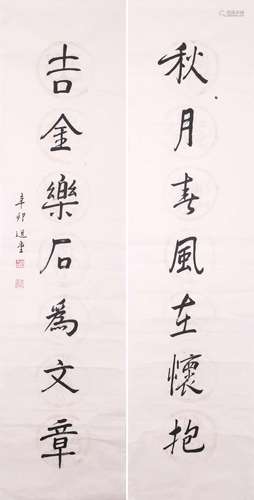 秋月春風在懷抱
吉金樂石為文章
辛卯